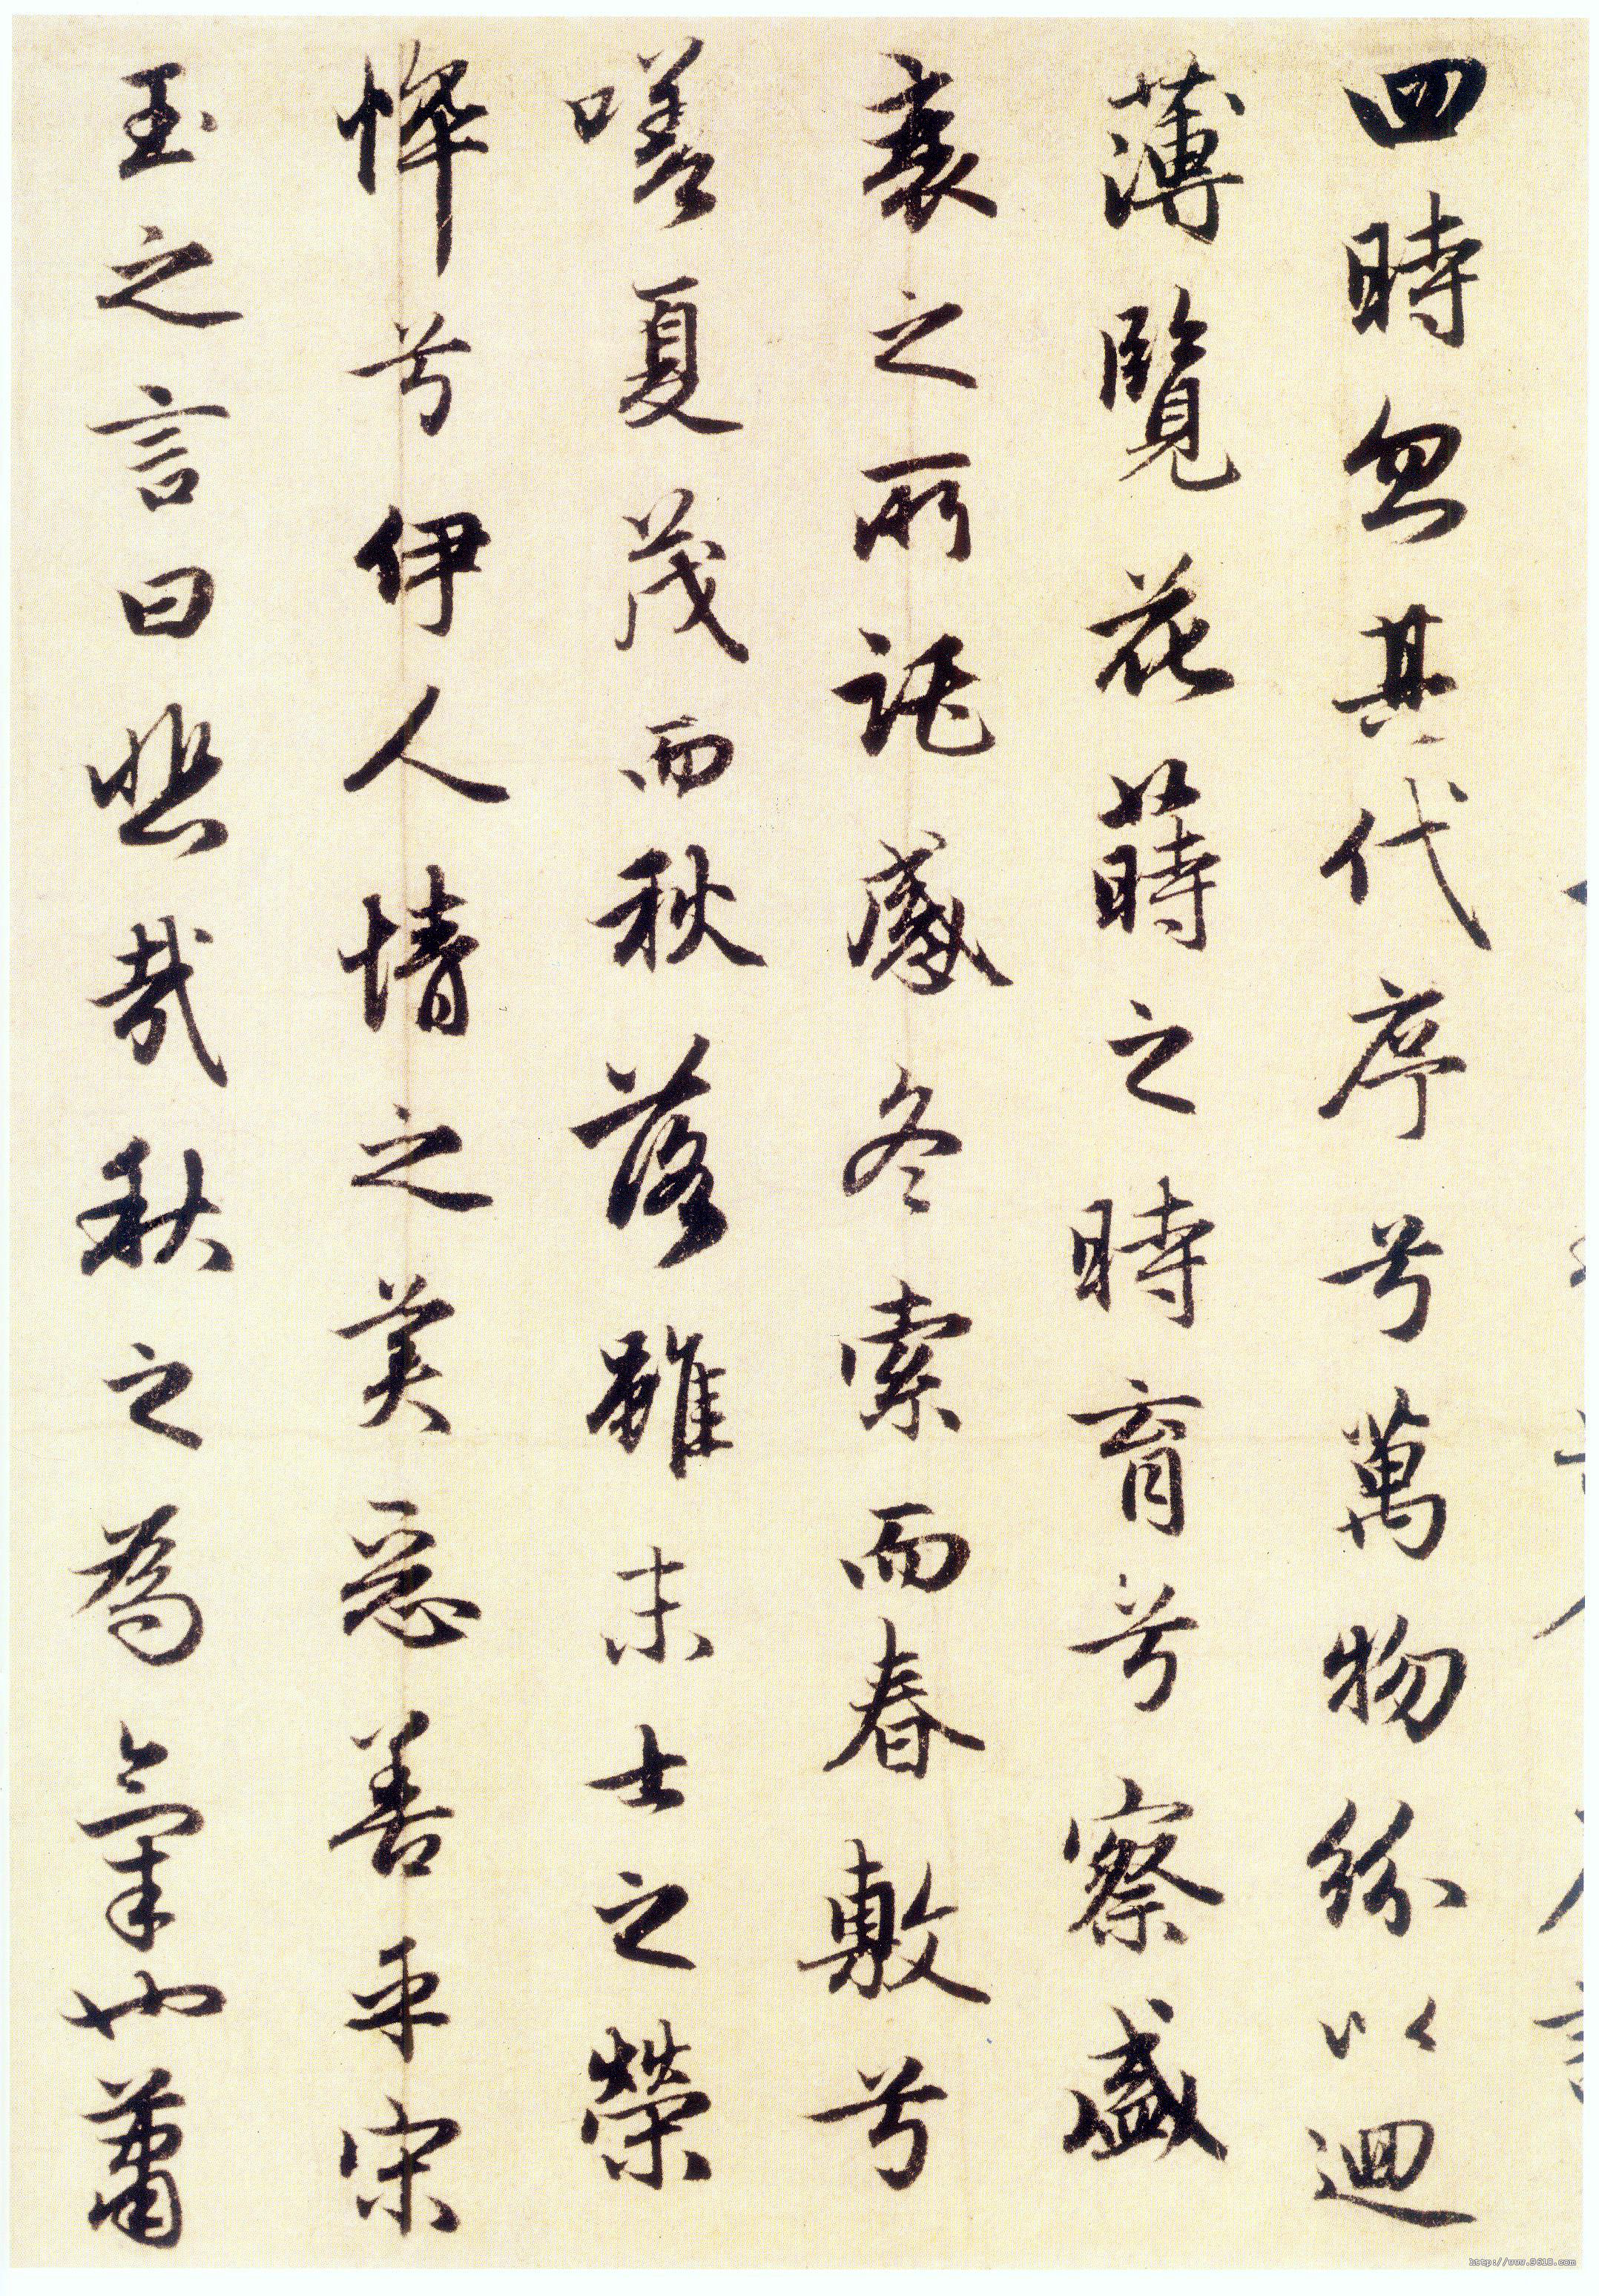 四時忽其代序兮萬物紛以迴
薄覽花蒔之時育兮察盛
衰之所託感冬索而春敷兮
嗟夏茂而秋落雖末士之榮
悴兮伊人情之美惡善乎宋
玉之言曰悲哉秋之為氣也蕭
http://www.9610.com